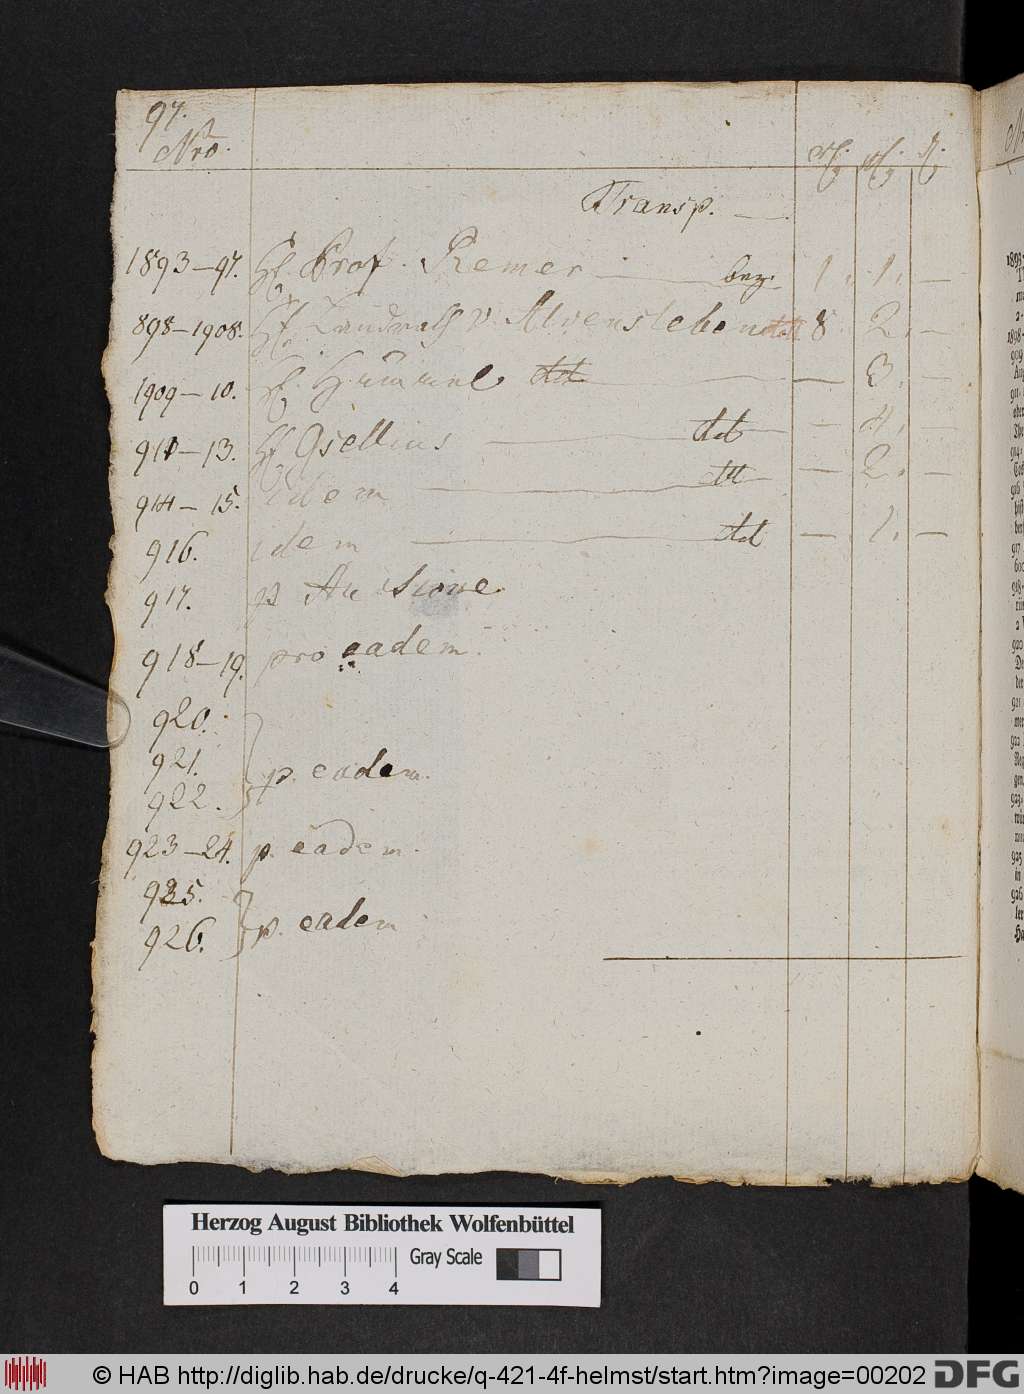 97.
Nro.
Transp. —
1893–97. H. Prof. Remer — bez. 1. 1. —
898–1908. H. Landrath v. Alvensleben dt 8 2. —
1909–10. H. dt — — 3. —
911–13. H. Gsellius — dt — 4. —
914–15. idem — dt — 2. —
916. idem — dt — 1. —
917. p Auctione
918–19. pro eadem.
920.
921. p. eadem.
922.
923–24. p. eadem.
925.
926. p. eadem
Herzog August Bibliothek Wolfenbüttel
Gray Scale
0 1 2 3 4
© HAB http://diglib.hab.de/drucke/q-421-4f-helmst/start.htm?image=00202 DFG